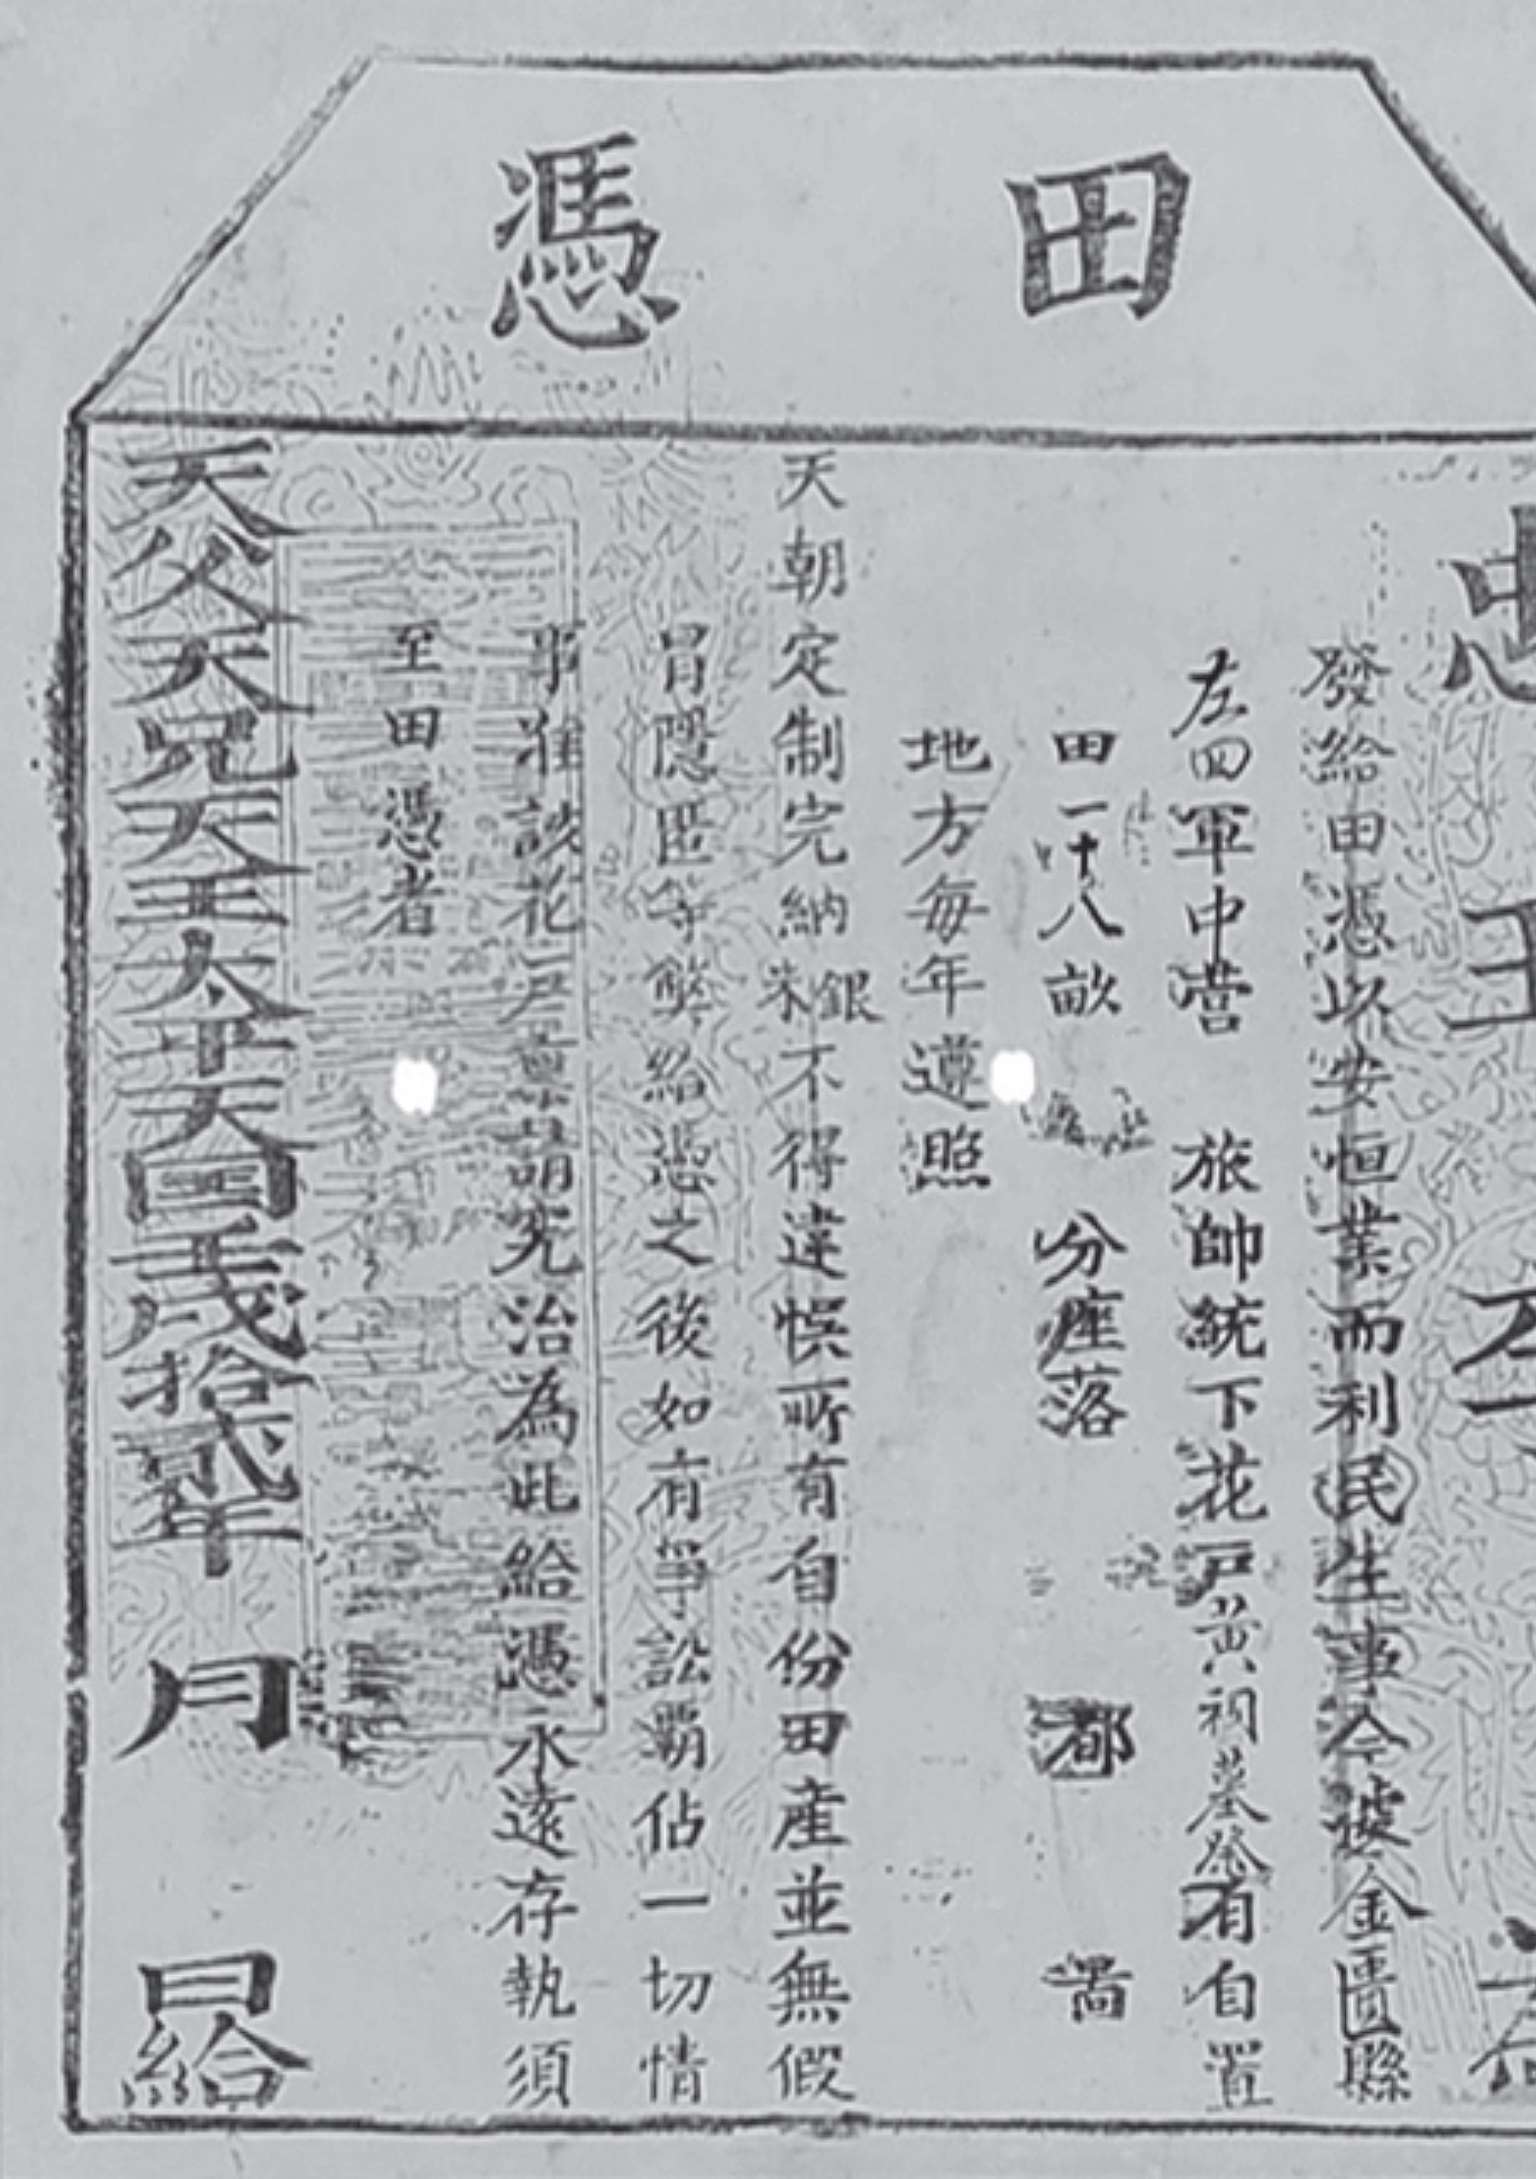 田憑
忠王
發給田憑以安恒業而利民生事今據金匱縣
左四軍中營 旅帥統下花戶黃祠墓祭有自置
田一十八畝 分座落 都 啚
地方每年遵照
天朝定制完納銀米不得違悞所有自份田產並無假
冒隱匿等弊給憑之後如有爭訟霸佔一切情
事准該花戶稟請究治為此給憑永遠存執須
至田憑者
天父天兄天王太平天囯壬戌拾貳年 月 日給